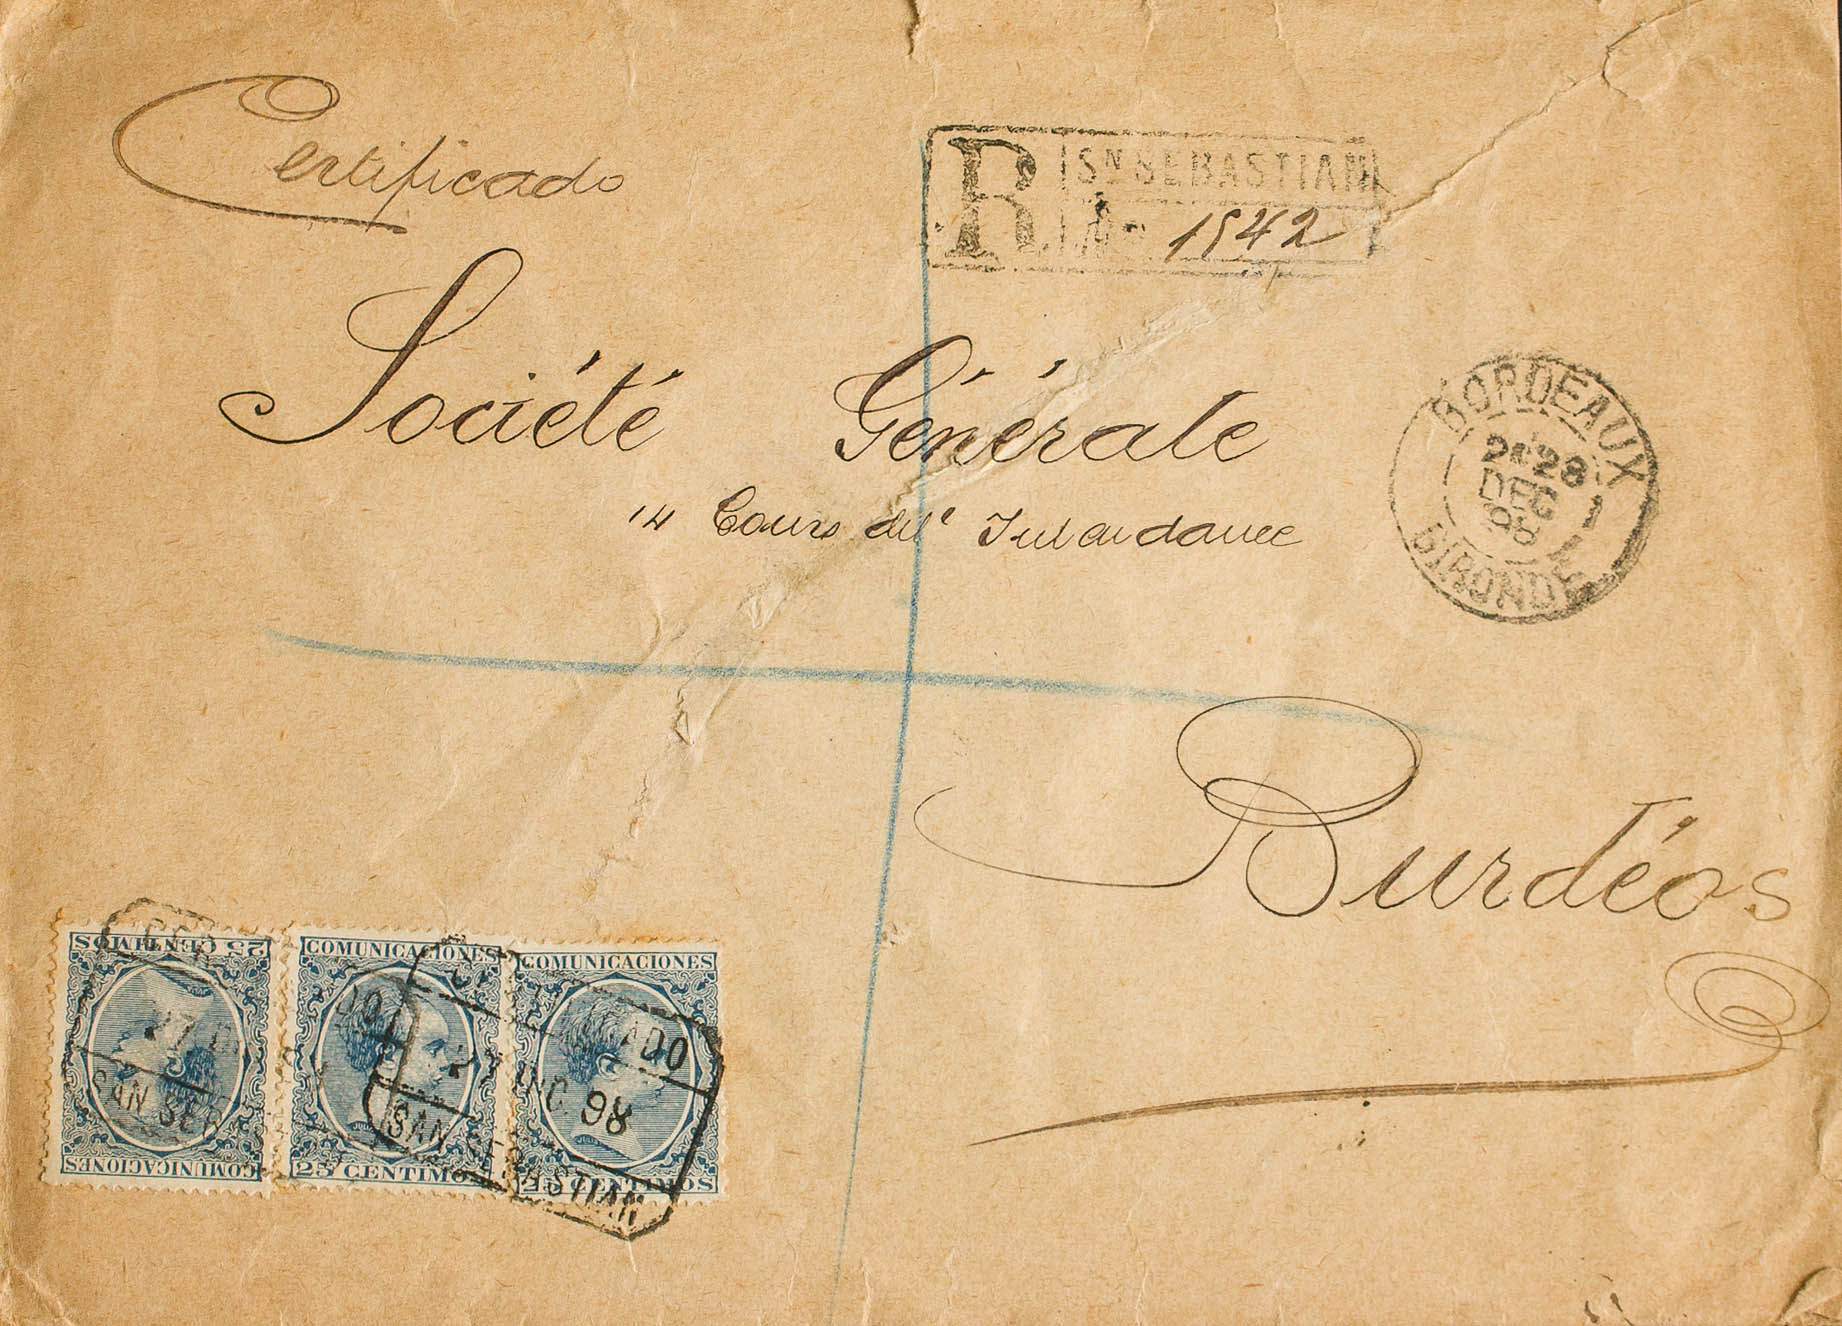 Certificado
R SN SEBASTIAN
No 1542
Société Générale
14 Cours de l'
BORDEAUX
2E 28
DEC
98
GIRONDE
Burdéos
25 CENTIMOS
COMUNICACIONES
COMUNICACIONES
25 CENTIMOS
COMUNICACIONES
25 CENTIMOS
CERTIFICADO
27 DIC 98
SAN SEBASTIAN